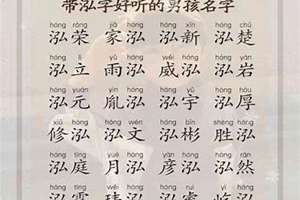 带泓字好听的男孩名字
hóng róng jiā hóng hóng xīn hóng chǔ
泓荣 家泓 泓新 泓楚
hóng lì yǔ hóng wēi hóng hóng yán
泓立 雨泓 威泓 泓岩
hóng yuán yìn hóng hóng yǔ hóng hòu
泓元 胤泓 泓宇 泓厚
xiū hóng hóng wén hóng bīn shèng hóng
修泓 泓文 泓彬 胜泓
hóng tíng yuè hóng yàn hóng hóng rán
泓庭 月泓 彦泓 泓然
hóng tíng wěi hóng hóng ruì lín hóng
泓霆 泓 泓睿 泓